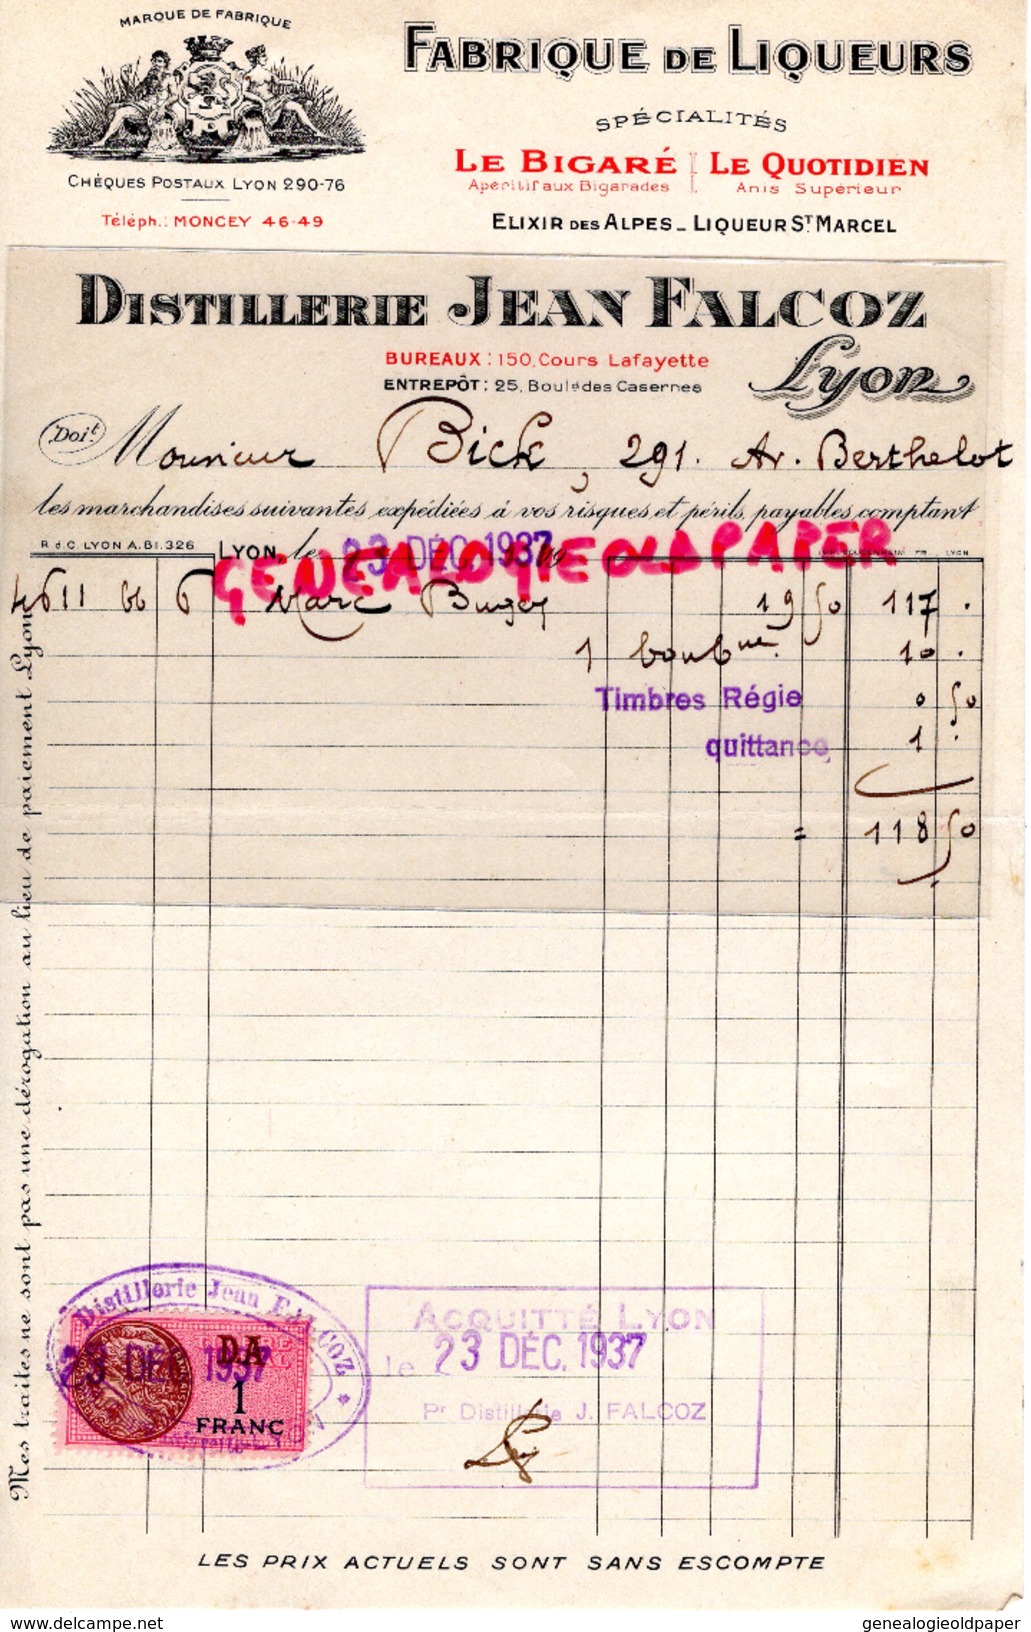 MARQUE DE FABRIQUE
FABRIQUE DE LIQUEURS
SPÉCIALITÉS
LE BIGARÉ LE QUOTIDIEN
Apéritif aux Bigarades Anis Supérieur
CHÈQUES POSTAUX LYON 290-76
Téléph.: MONCEY 46-49
ELIXIR DES ALPES _ LIQUEUR ST MARCEL
DISTILLERIE JEAN FALCOZ
BUREAUX : 150, Cours Lafayette
ENTREPÔT : 25, Bould des Casernes
Lyon
Doit Monsieur Bick, 291. Av. Berthelot
les marchandises suivantes expédiées à vos risques et périls, payables comptant
R. d C. LYON A.B1.326
LYON, le 23 DÉC. 1937 19
GENEALOGIEOLDPAPER
66 6 Marc Bugey 19 50 117 .
1 bonbne 10 .
Timbres Régie 0 50
quittance 1 .
= 118 50
Mes traites ne sont pas une dérogation au lieu de paiement Lyon
Distillerie Jean FALCOZ
23 DÉC 1937
DA
1
FRANC
ACQUITTÉ LYON
le 23 DÉC. 1937
Pr Distillerie J. FALCOZ
LES PRIX ACTUELS SONT SANS ESCOMPTE
www.delcampe.net genealogieoldpaper